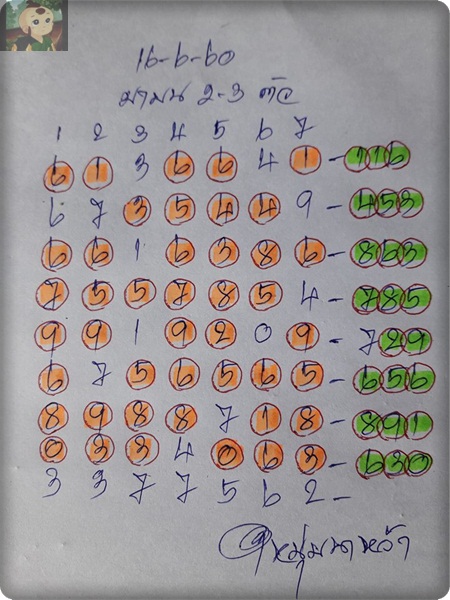 16-6-60
มามน 2-3 ตัว
1 2 3 4 5 6 7
6 1 3 6 6 4 1 - 116
6 7 3 5 4 4 9 - 453
6 6 1 6 3 8 6 - 863
7 5 5 7 8 5 4 - 785
9 9 1 9 2 0 9 - 729
6 7 5 6 5 6 5 - 656
8 9 8 8 7 1 8 - 891
0 3 3 4 0 6 3 - 630
3 3 7 7 5 6 2 -
หนุ่มนาหว้า